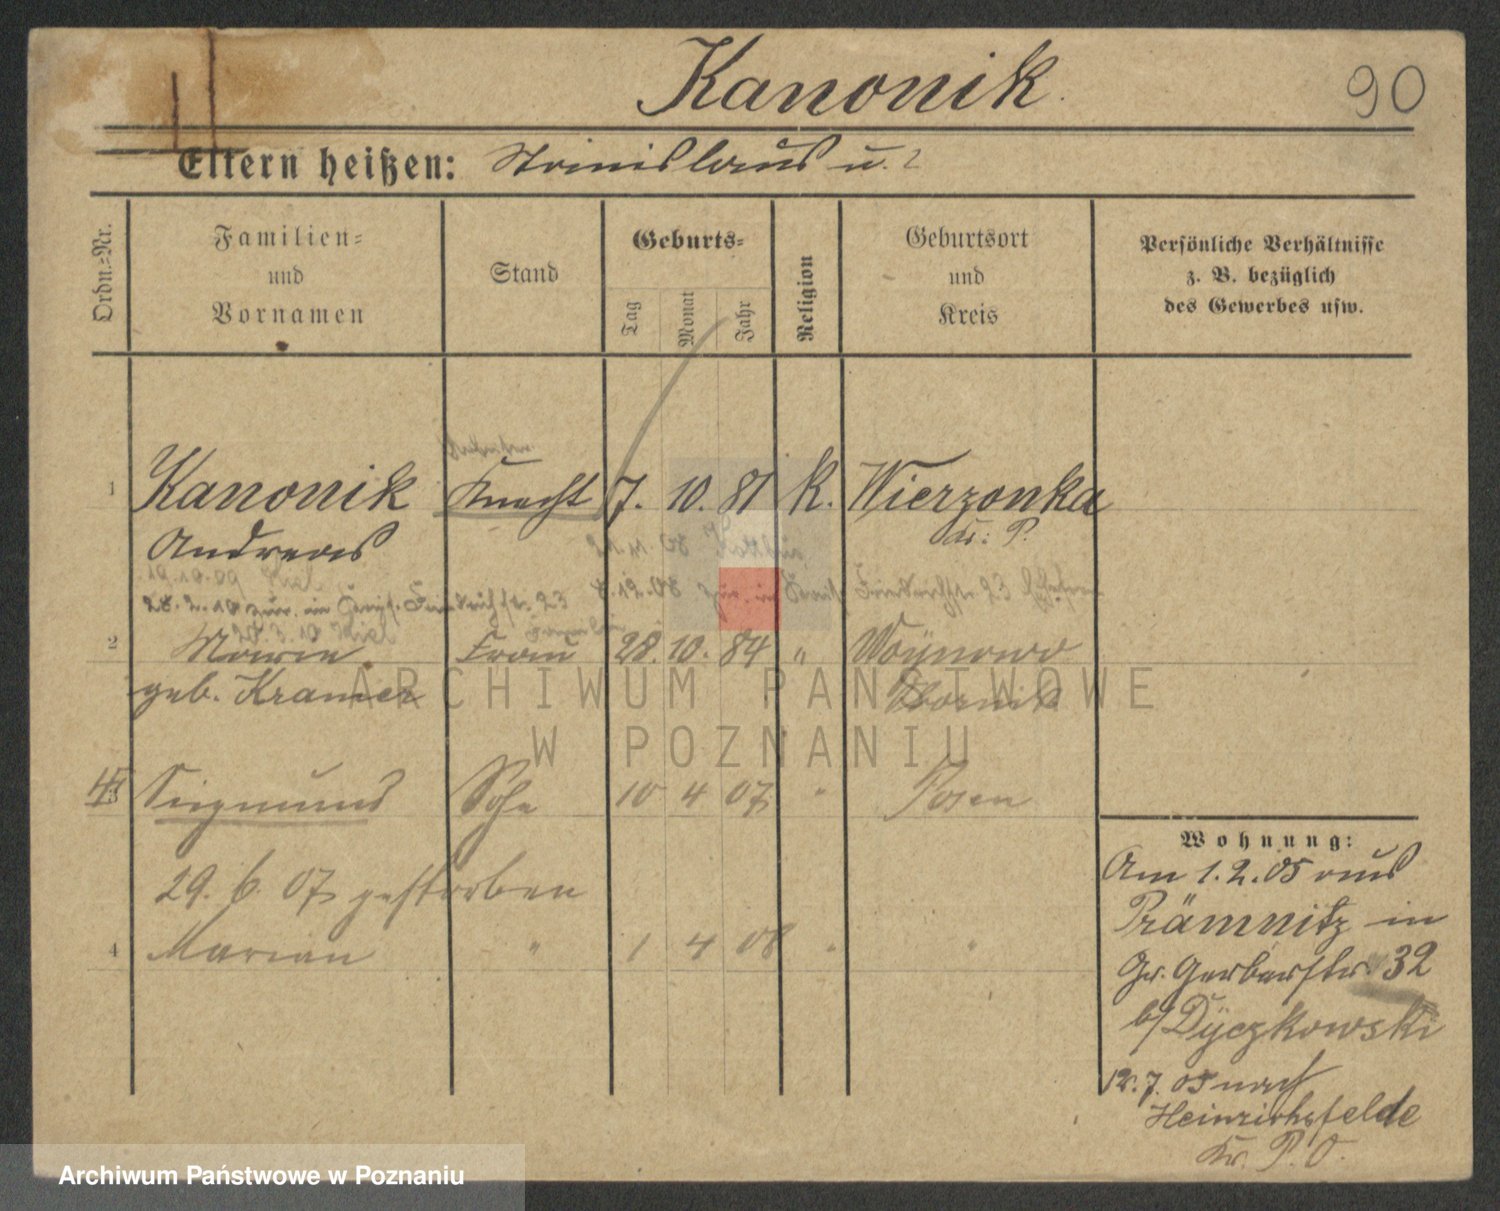 Kanonik
90
Eltern heißen: Stanislaus u. ?
Ordn.-Nr.
Familien-
und
Vornamen
Stand
Geburts-
Tag
Monat
Jahr
Religion
Geburtsort
und
Kreis
Persönliche Verhältnisse
z. B. bezüglich
des Gewerbes usw.
1 Kanonik Knecht 7. 10. 81 K. Wierzonka
Andreas Kr. P.
19.10.09 Kiel
28.2.10 zur. in
8.12.08 zur. in Friedrichstr. 23
20.3.10 Kiel
2 Marie Frau 28. 10. 84 " Woÿnowo
geb. Kramer Obornik
3 Siegmund Sohn 10 4 07 " Posen
29. 6. 07 gestorben
4 Marian " 1 4 08 " "
Wohnung:
Am 1.2.05 aus
Prämnitz in
Gr. Gerberstr. 32
b/ Dÿczkowski
12.7.05 nach
Heinrichsfelde
Kr. P. O.
ARCHIWUM PAŃSTWOWE
W POZNANIU
Archiwum Państwowe w Poznaniu